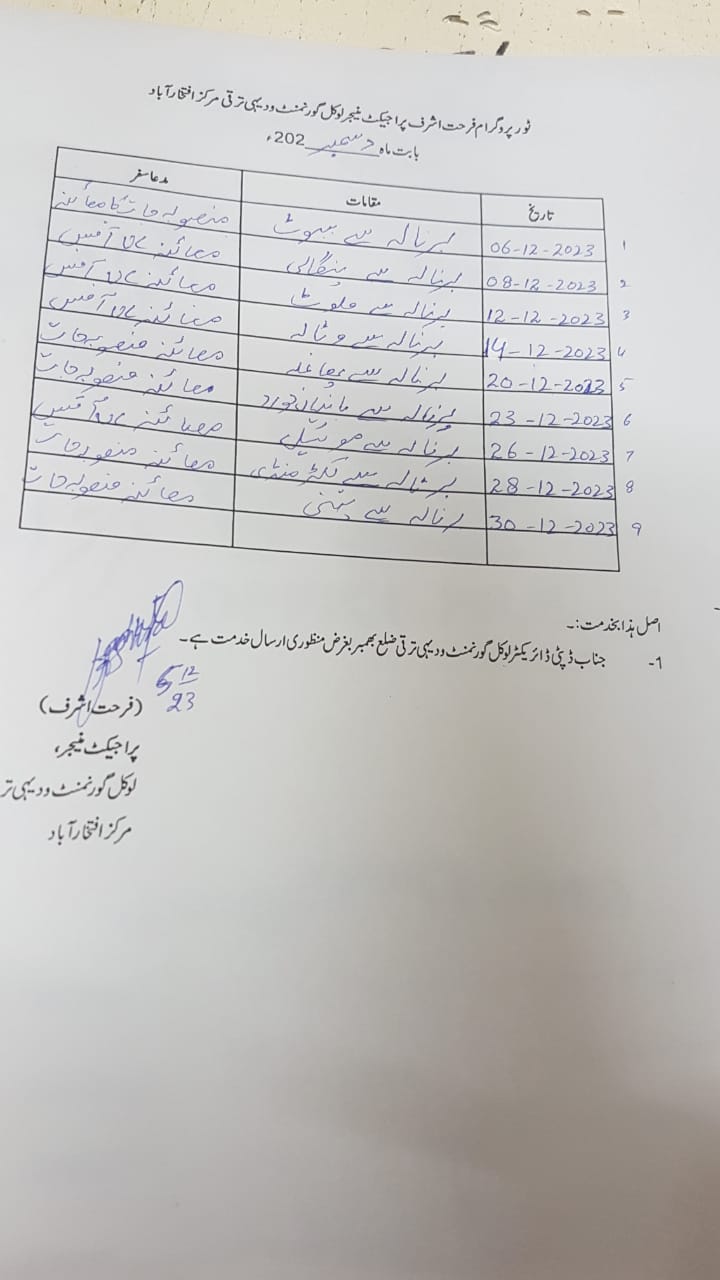 ٹور پروگرام فرحت اشرف پراجیکٹ منیجر لوکل گورنمنٹ و دیہی ترقی مرکز افتخار آباد
بابت ماہ دسمبر 202ء
تاریخ مقامات مدعا سفر
1 06-12-2023 برنالہ سے منصوبہ جات کا معائنہ
2 08-12-2023 برنالہ سے پنگالی معائنہ UC آفس
3 12-12-2023 برنالہ سے ملوٹ معائنہ UC آفس
4 14-12-2023 برنالہ سے وٹالہ معائنہ UC آفس
5 20-12-2023 برنالہ سے معائنہ منصوبہ جات
6 23-12-2023 برنالہ سے معائنہ منصوبہ جات
7 26-12-2023 برنالہ سے معائنہ UC آفس
8 28-12-2023 برنالہ سے معائنہ منصوبہ جات
9 30-12-2023 برنالہ سے معائنہ منصوبہ جات
اصل ہذا بخدمت:۔
1- جناب ڈپٹی ڈائریکٹر لوکل گورنمنٹ و دیہی ترقی ضلع بھمبر بغرض منظوری ارسال خدمت ہے۔
5 12
23
(فرحت اشرف)
پراجیکٹ منیجر،
لوکل گورنمنٹ و دیہی تر
مرکز افتخار آباد